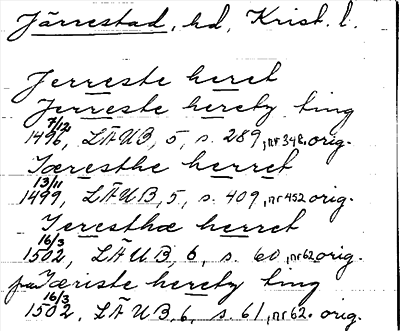 Järrestad, hd, Krist. l.
Jerreste heret
Jerreste herety ting
7/12 1496, LÄUB, 5, s. 289, nr 348. orig.
Jæresthe herret
13/11 1499, LÄUB, 5, s. 409, nr 452 orig.
Jeresthæ herret
16/3 1502, LÄUB, 6, s. 60, nr 62 orig.
paa Jæriste herety ting
16/3 1502, LÄUB, 6, s. 61, nr 62. orig.